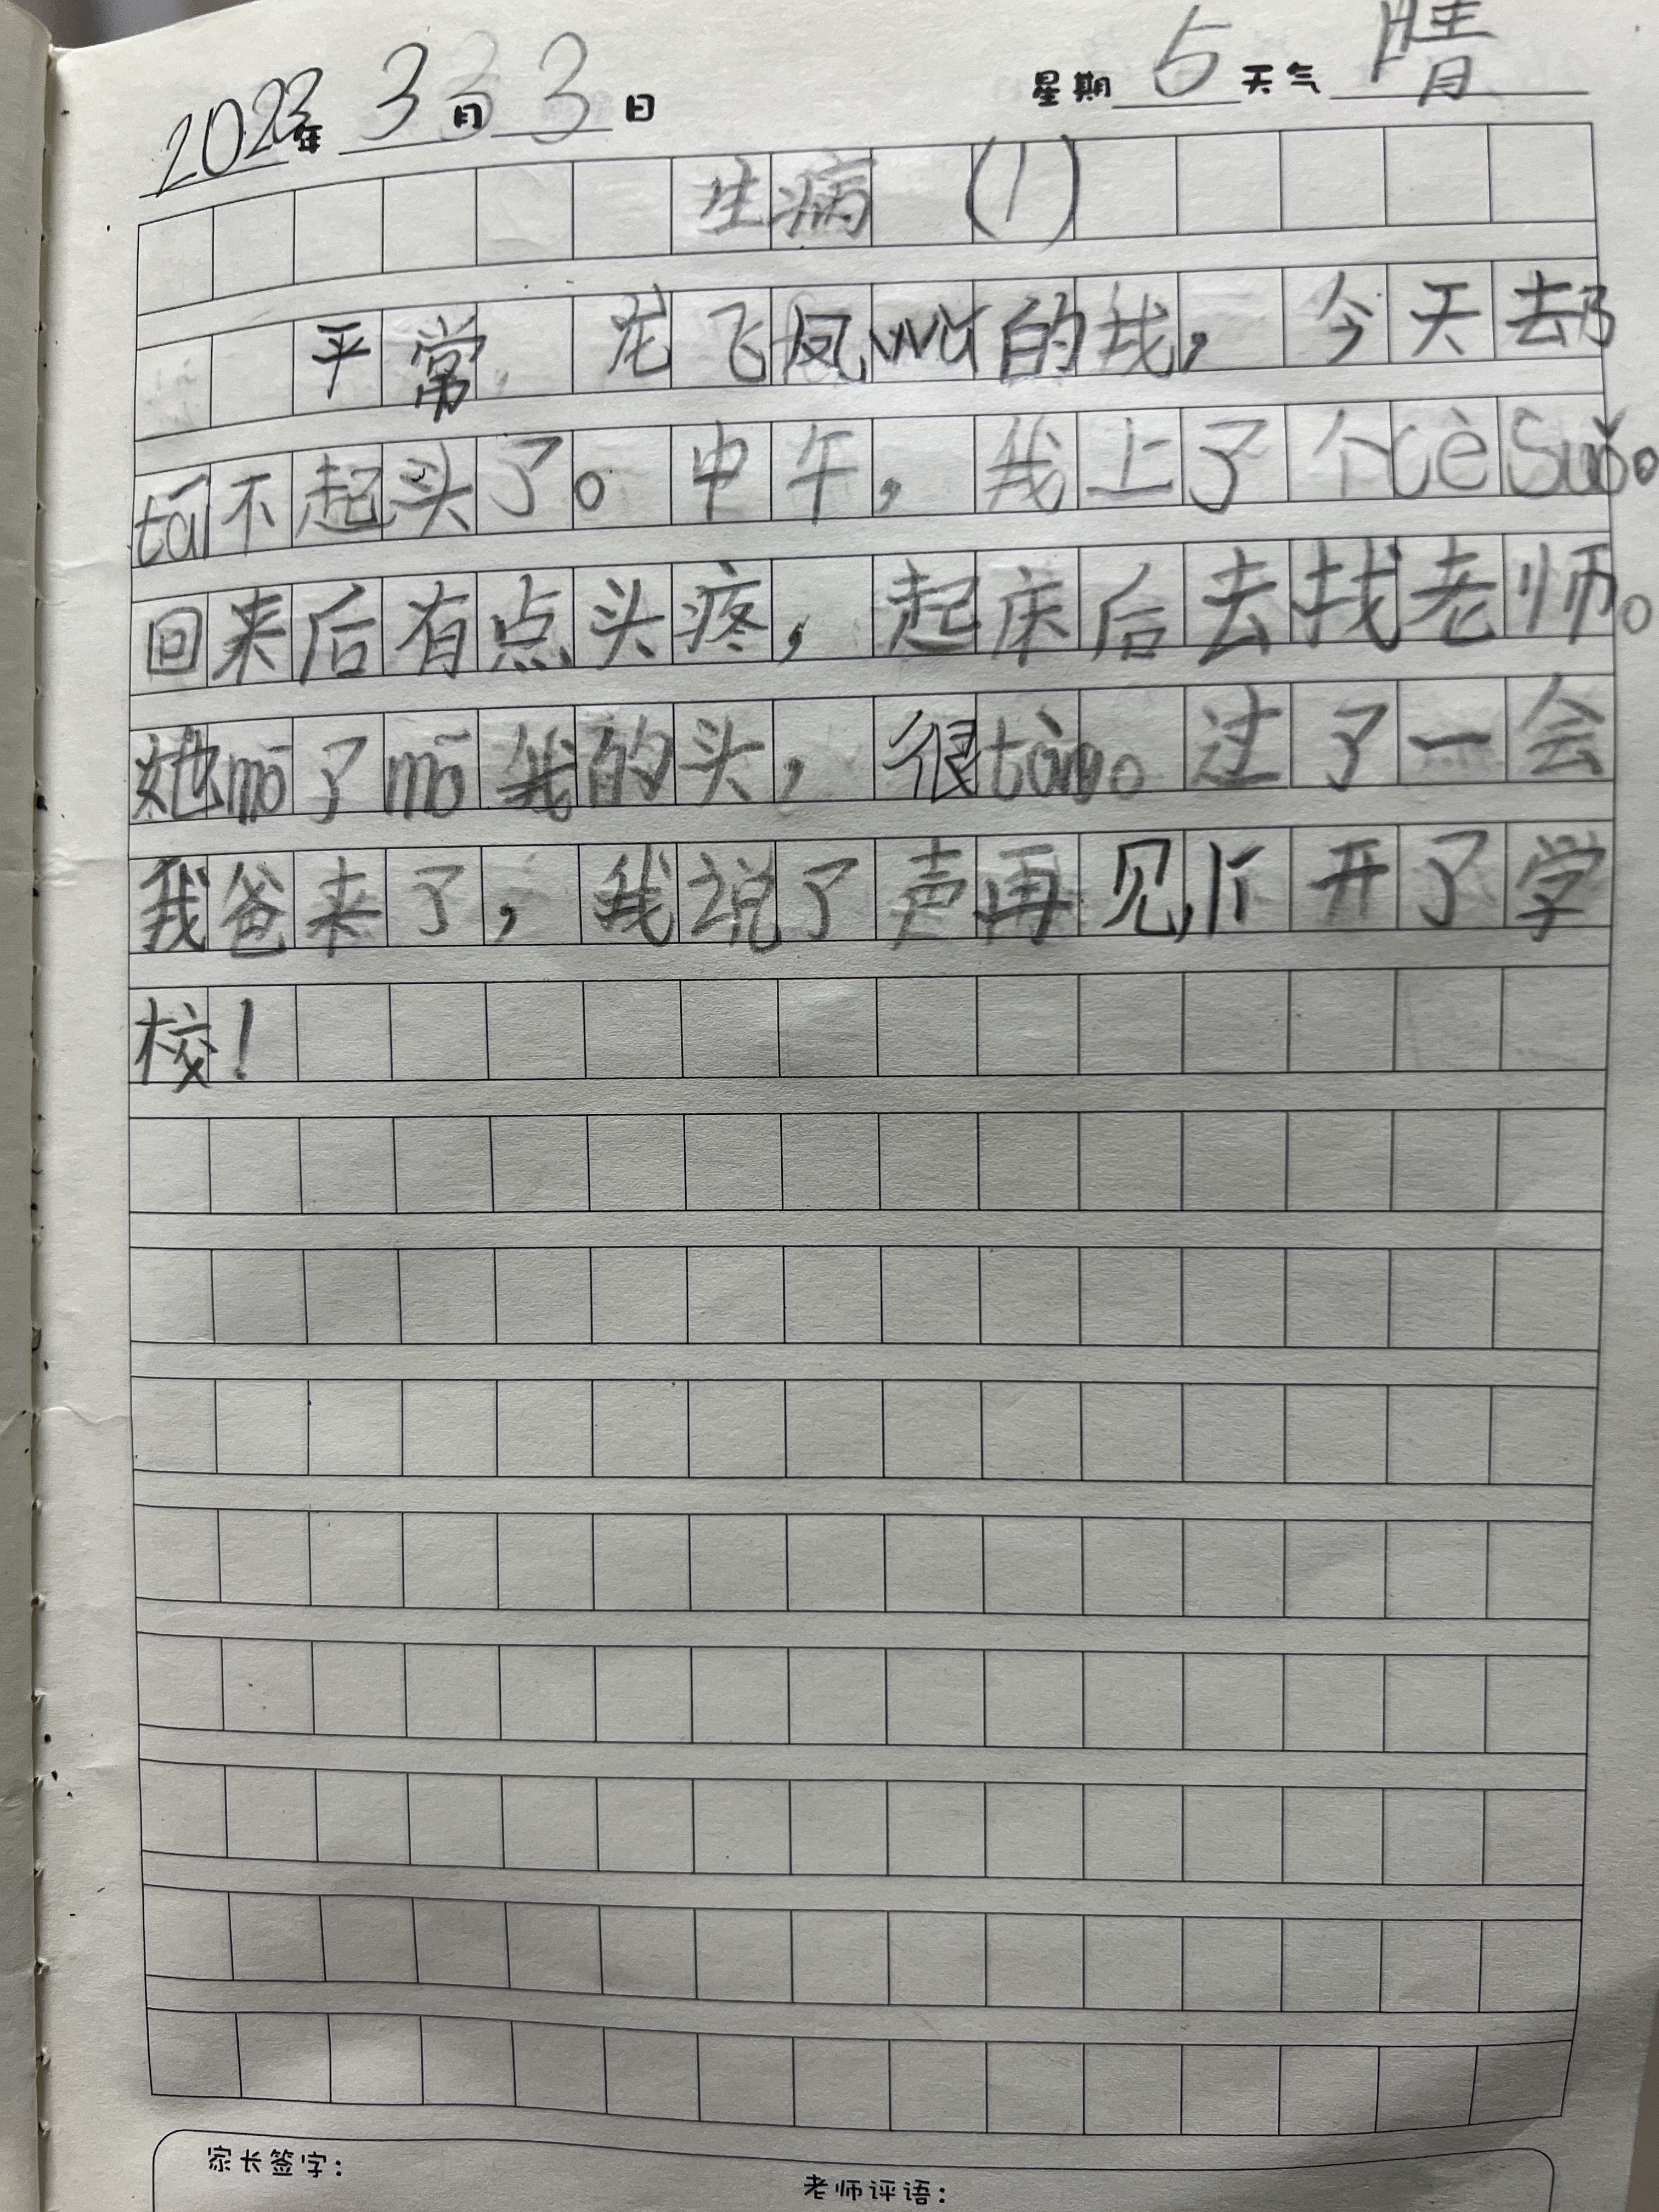 2023年 3月 3日 星期 5 天气 晴
生病 (1)
平常 龙飞凤wǔ的我，今天去
tái不起头了。中午，我上了个cèsuǒ。
回来后有点头疼，起床后去找老师。
她mō了mō我的头，很tàng。过了一会
我爸来了，我说了声再见，开了学
校！
家长签字：
老师评语：